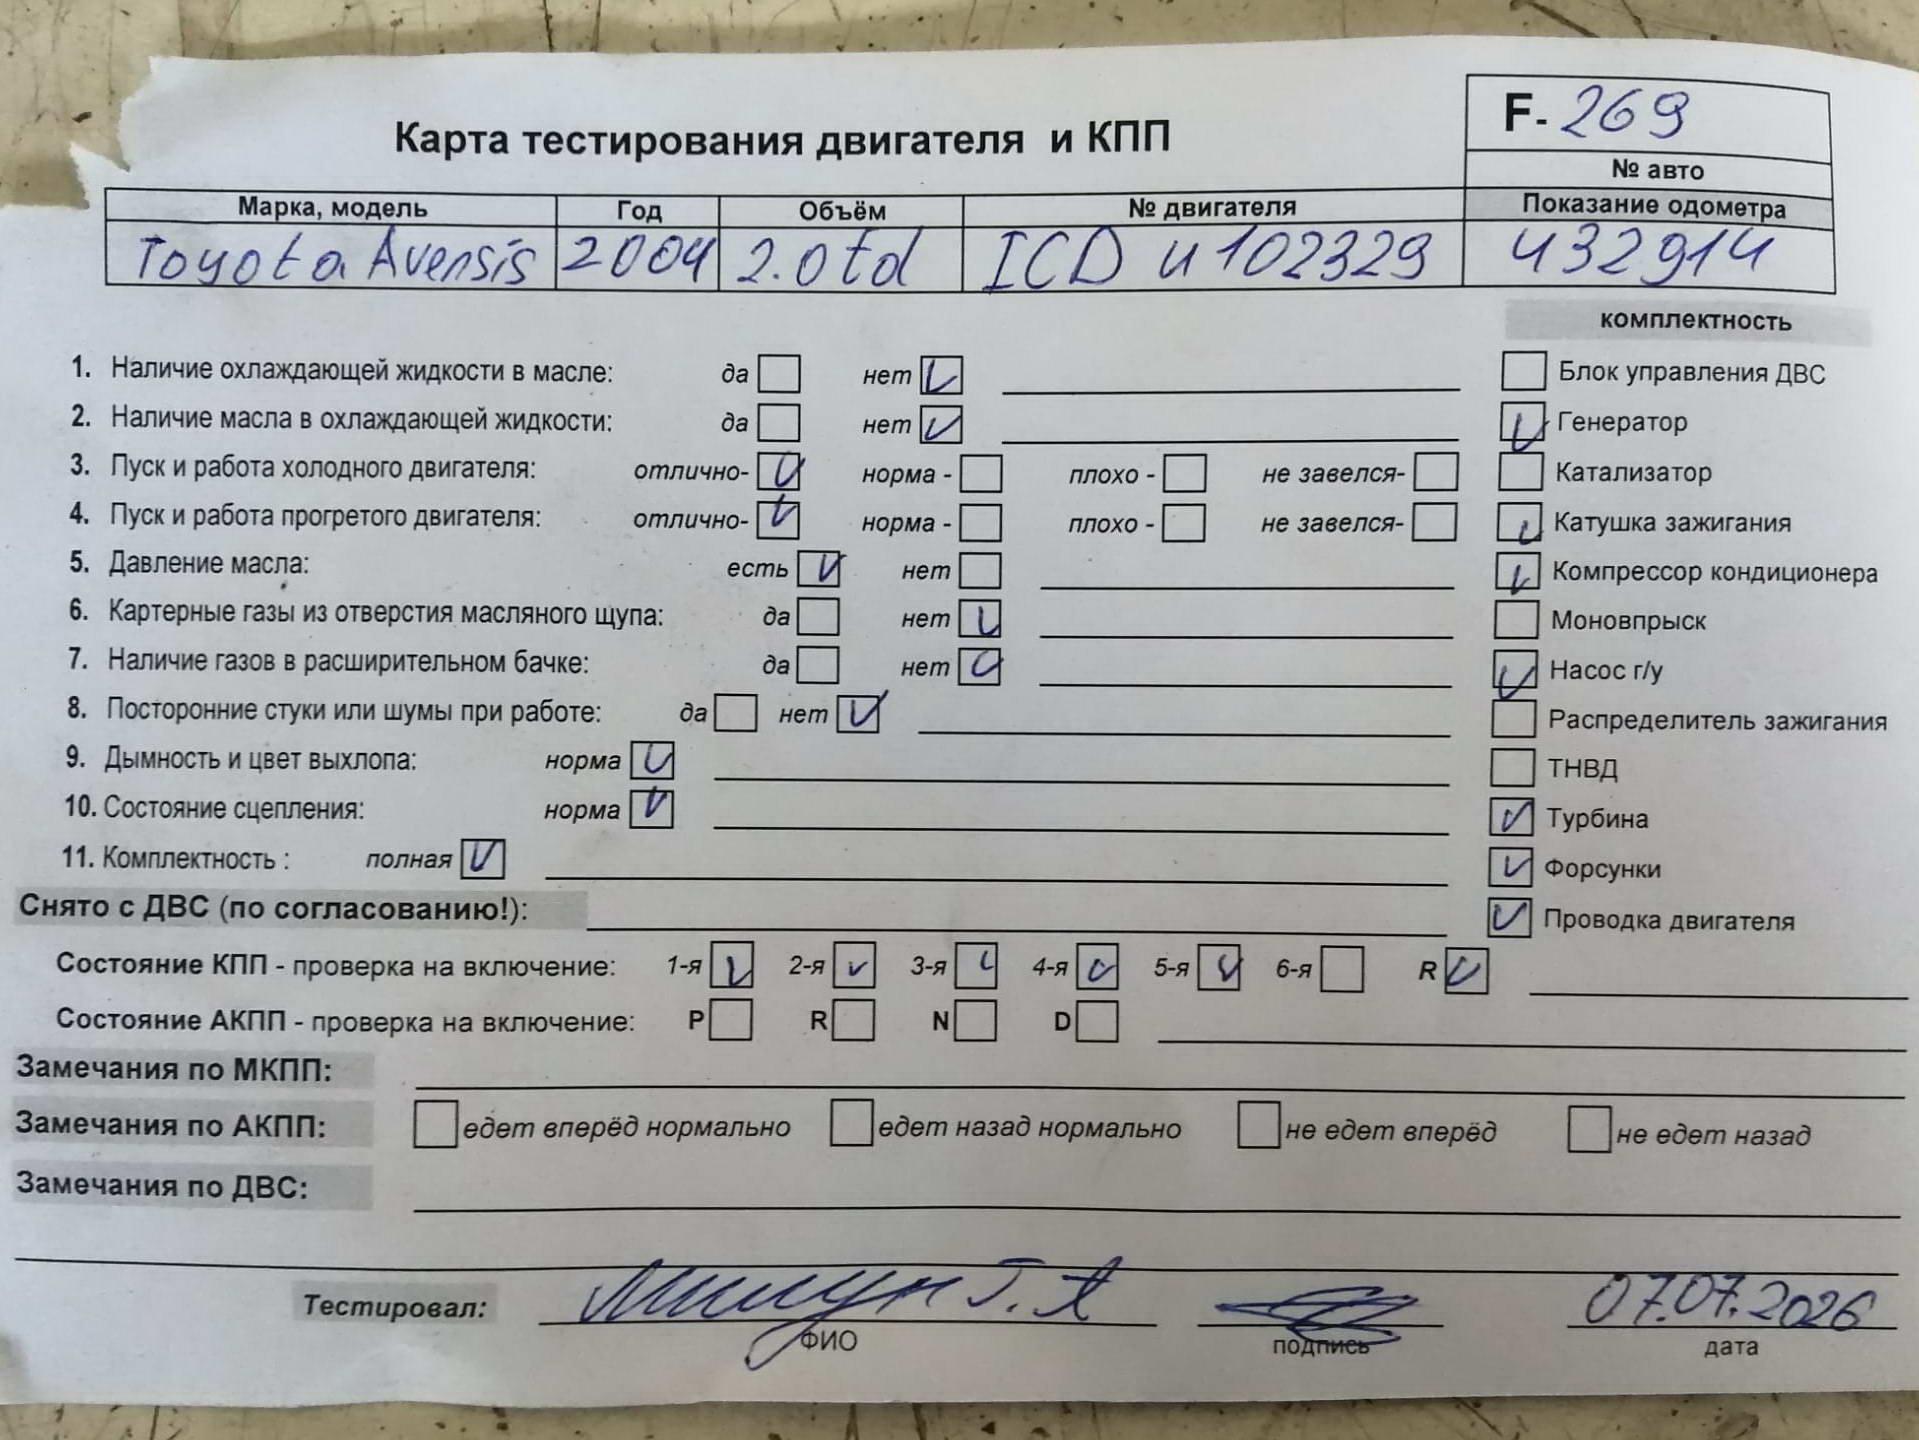 F- 269
Карта тестирования двигателя и КПП
№ авто
Марка, модель Год Объём № двигателя Показание одометра
Toyota Avensis 2004 2.0 td ICD u102329 432914
комплектность
1. Наличие охлаждающей жидкости в масле: да нет
Блок управления ДВС
2. Наличие масла в охлаждающей жидкости: да нет
Генератор
3. Пуск и работа холодного двигателя: отлично- норма - плохо - не завелся-
Катализатор
4. Пуск и работа прогретого двигателя: отлично- норма - плохо - не завелся-
Катушка зажигания
5. Давление масла: есть нет
Компрессор кондиционера
6. Картерные газы из отверстия масляного щупа: да нет
Моновпрыск
7. Наличие газов в расширительном бачке: да нет
Насос г/у
8. Посторонние стуки или шумы при работе: да нет
Распределитель зажигания
9. Дымность и цвет выхлопа: норма
ТНВД
10. Состояние сцепления: норма
Турбина
11. Комплектность : полная
Форсунки
Снято с ДВС (по согласованию!):
Проводка двигателя
Состояние КПП - проверка на включение: 1-я 2-я 3-я 4-я 5-я 6-я R
Состояние АКПП - проверка на включение: P R N D
Замечания по МКПП:
Замечания по АКПП: едет вперёд нормально едет назад нормально не едет вперёд не едет назад
Замечания по ДВС:
Тестировал: Милун Г. А 07.07.2026
ФИО подпись дата